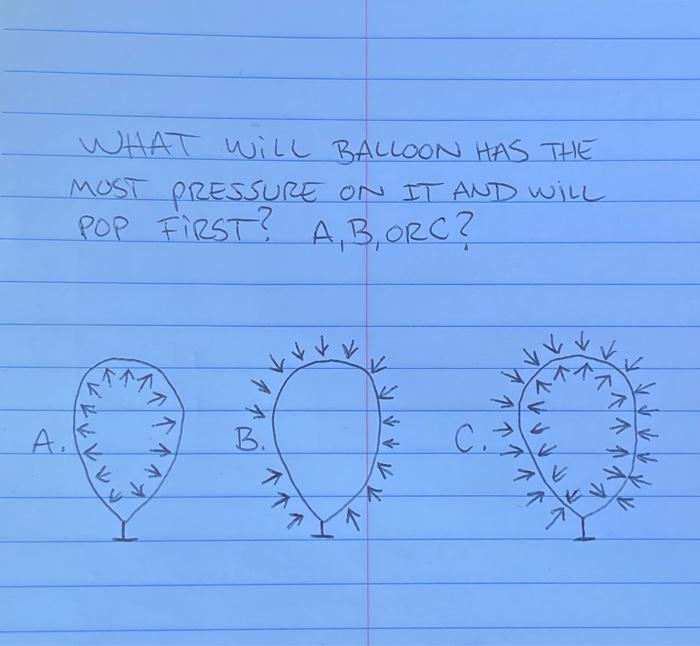 WHAT WILL BALLOON HAS THE
MOST PRESSURE ON IT AND WILL
POP FIRST? A, B, OR C?
A. B. C.